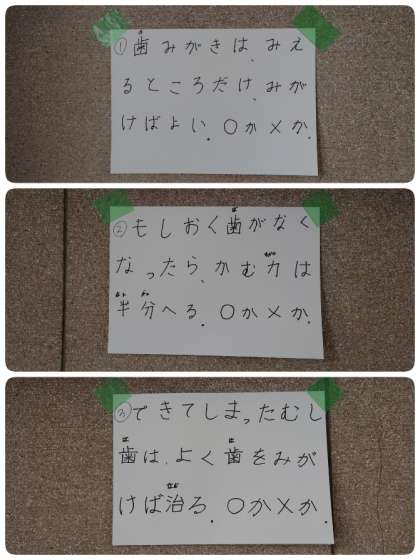 ①歯みがきは、みえ
るところだけ、みが
けばよい。〇か×か。
②もしおく歯がなく
なったら、かむ力は
半分へる。〇か×か。
③できてしまったむし
歯は、よく歯をみが
けば治る。〇か×か。